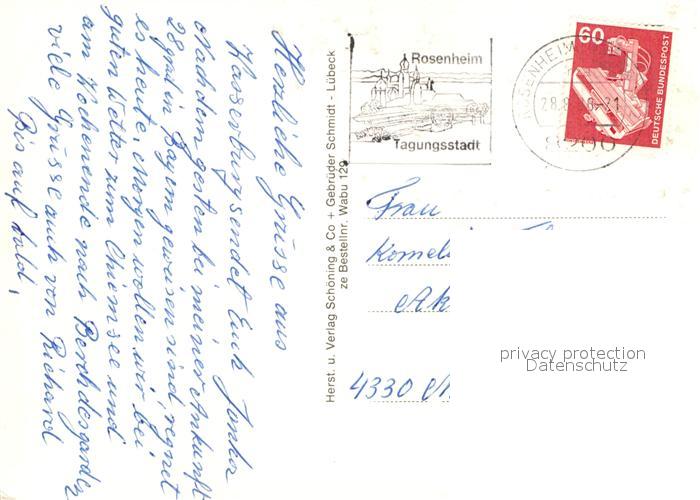 Herzliche Grüsse aus
Wasserburg sendet Euch
Nachdem gestern bei meiner Ankunft
28 grd in Bayern gewesen sind, regnet
es heute. Morgen wollen wir bei
guten Wetter zum Chiemsee und
am Wochenende nach Berchdesgarden
viele Grüsse auch von Richard
Bis auf bald,
Herst. u. Verlag Schöning & Co + Gebrüder Schmidt - Lübeck
ze Bestellnr. Wabu 129
Rosenheim
Tagungsstadt
ROSENHEIM
28.8.
8200
60
DEUTSCHE BUNDESPOST
Frau
Kornel
4330
privacy protection
Datenschutz